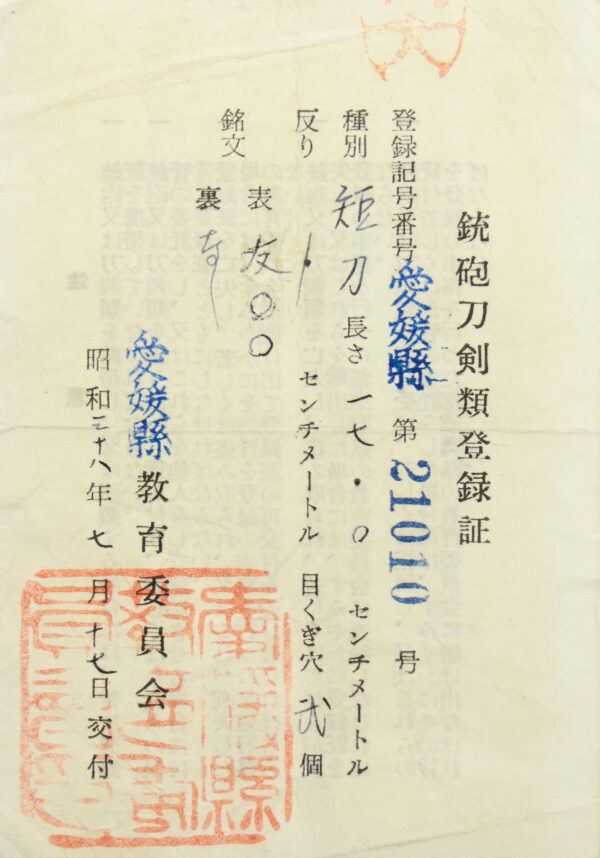 銃砲刀剣類登録証
登録記号番号 愛媛縣 第 21010 号
種別 短刀 長さ 一七・〇 センチメートル
反り ・ センチメートル 目くぎ穴 弐 個
銘文 表 友〇〇
裏
愛媛縣教育委員会
昭和二十八年七月十七日交付